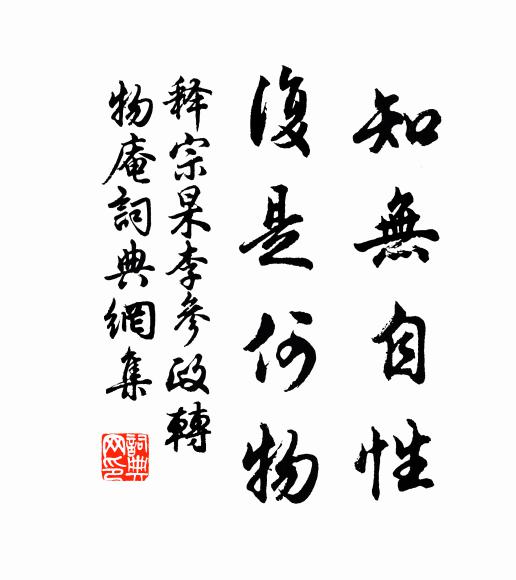 知無自性
復是何物
释宗杲李參政轉
物庵詞典網集
詞典网印